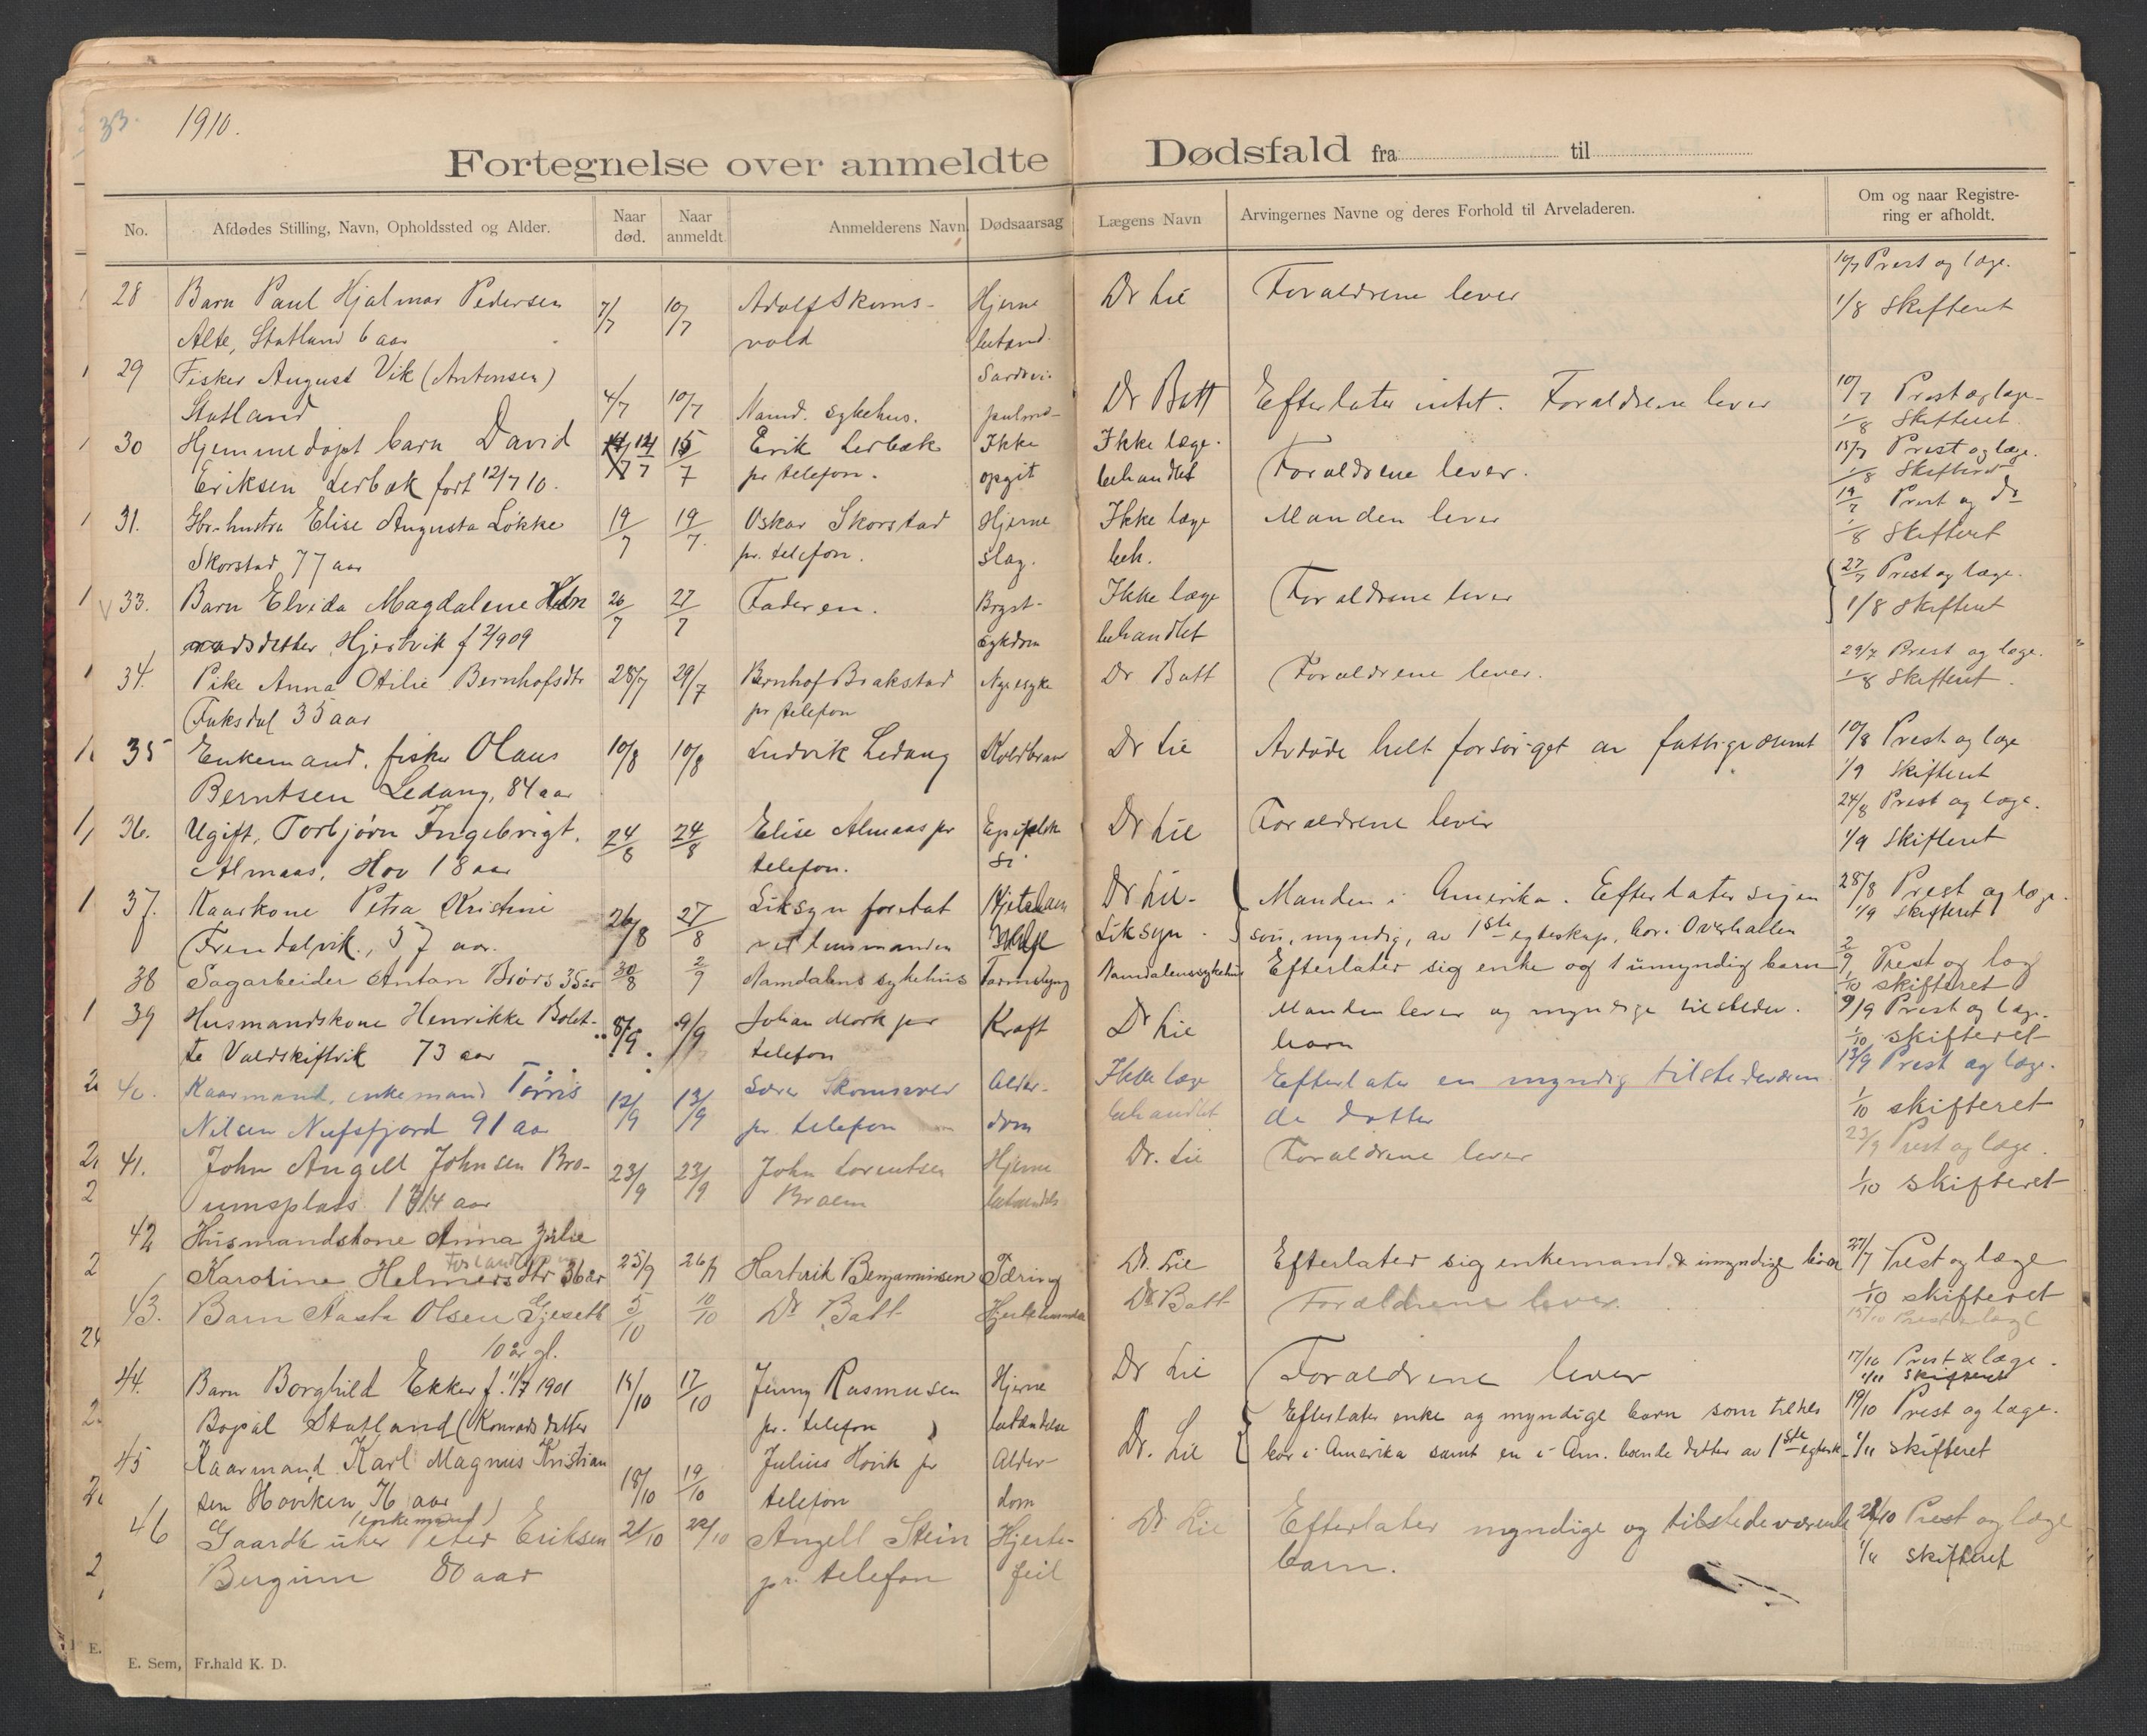 33.
1910.
Fortegnelse over anmeldte Dødsfald fra til
No.
Afdødes Stilling, Navn, Opholdssted og Alder.
Naar død.
Naar anmeldt.
Anmelderens Navn.
Dødsaarsag
Lægens Navn
Arvingernes Navne og deres Forhold til Arveladeren.
Om og naar Registre-
ring er afholdt.
28 Barn Paul Hjalmar Pedersen 7/7 10/7 Adolf Skoms- Hjerne Dr Lie Foraldrene lever 10/7 Prest og læge.
Alte, Statland 6 aar vold betænd. 1/8 Skifteret
29 Fisker August Vik (Antonsen)
Statland 4/7 10/7 Namd. sykehus. pulmo- Dr Batt Efterlater intet. Foraldrene lever 10/7 Prest og læge
1/8 Skifteret
30 Hjemmedøpt barn David 14/7 15/7 Erik Lerbæk Ikke Ikke læge- 15/7 Prest og læge.
Eriksen Lerbæk født 12/7 10. pr telefon. opgit behandlet Foraldrene lever. 1/8 Skifteret
31. Gbr.hustru Elise Augusta Løkke 19/7 19/7 Oskar Skorstad Hjerne Ikke læge Manden lever 19/7 Prest og do
Skorstad 77 aar pr. telefon. slag. beh. 1/8 Skifteret
33. Barn Elvida Magdalene 26/7 27/7 Faderen. Bryst- Ikke læge Foraldrene lever 27/7 Prest og læge.
radsdatter Hjertvik f 2/9 09 sykdom behandlet 1/8 Skifteret
34. Pike Anna Otilie Bernhofsdtr 28/7 29/7 Bernhof Brakstad Nyresyke Dr Batt Foraldrene lever. 29/7 Prest og læge.
Fuksdal 35 aar pr telefon 1/8 Skifteret.
35 Enkemand, fisker Olaus 10/8 10/8 Ludvik Ledang Koldbran Dr Lie Avdøde helt forsørget av fattigvæsenet 10/8 Prest og læge
Berntsen Ledang, 84 aar 1/9 Skifteret
36. Ugift, Torbjørn Ingebrigt. 24/8 24/8 Elise Almaas pr Dr Lie Foraldrene lever 24/8 Prest og læge.
Almaas, Hov 18 aar telefon. 1/9 Skifteret
37. Kaarkone Petra Kristine 26/8 27/8 Liksyn foretat Dr Lie- Manden i Amerika. Efterlater sig en 28/8 Prest og læge.
Frendalvik, 57 aar. ved lensmanden Liksyn. søn, myndig, av 1ste egteskap, bor i Overhallen 1/9 skifteret
38 Sagarbeider Anton Brørs 35 aar 30/8 2/9 Namdalens sykehus Tarmslyng Namdalens sykehus Efterlater sig enke og 1 umyndig barn 2/9 Prest og læg
1/10 skifteret
39 Husmandskone Henrikke Bolet- 8/9 9/9 Johan Mork per Kræft Dr Lie Manden lever og myndige tilsteder. 9/9 Prest og læge.
te Valdskiftvik 73 aar telefon barn 1/10 skifteret
40. Kaarmand, enkemand Tørris 12/9 13/9 pr. telefon Alder- dom Ikke læge behandlet Efterlater en myndig tilstedeværen 13/9 Prest og læge.
Nilsen Nufsfjord 91 aar de datter 1/10 skifteret
41. John Angell Johnsen Bra- 23/9 23/9 John Lorentsen Hjerne Dr. Lie Foraldrene lever 23/9 Prest og læge.
umsplads aar Braem betændels 1/10 skifteret
42 Husmandskone Anna Julie
Karoline Helmersdtr 36 aar 25/9 26/9 Hartvik Benjaminsen Tæring Dr. Lie Efterlater sig enkemand & umyndige børn 27/7 Prest og læge
1/10 skifteret
43. Barn Aasta Olsen Gjeseth 5/10 10/10 Dr Batt Dr Batt Foraldrene lever. 15/10 Prest & læge
10 år gl.
44. Barn Borghild Ekker f. 11/7 1901 15/10 17/10 Jenny Rasmusen Hjerne Dr Lie Foraldrene lever 17/10 Prest & læge.
Bopæl Statland (Konradsdatter pr. telefon betændelse 1/11 skifteret
45 Kaarmand Karl Magnus Kristian 18/10 19/10 Julius Hovik pr Alder- Dr. Lie Efterlater enke og myndige barn som tildels 19/10 Prest og læge.
sen Hovikken 76 aar telefon dom bor i Amerika samt en i Am. boende datter av 1ste egtesk. 1/11 skifteret
(enkemand)
46 Gaardbruker Peter Eriksen 21/10 22/10 Angell Stein Hjerte- Dr Lie Efterlater myndige og tilstedeværende Prest og læge
Bergum 80 aar pr. telefon feil barn. 1/11 skifteret
E. Sem, Fr.hald K. D.